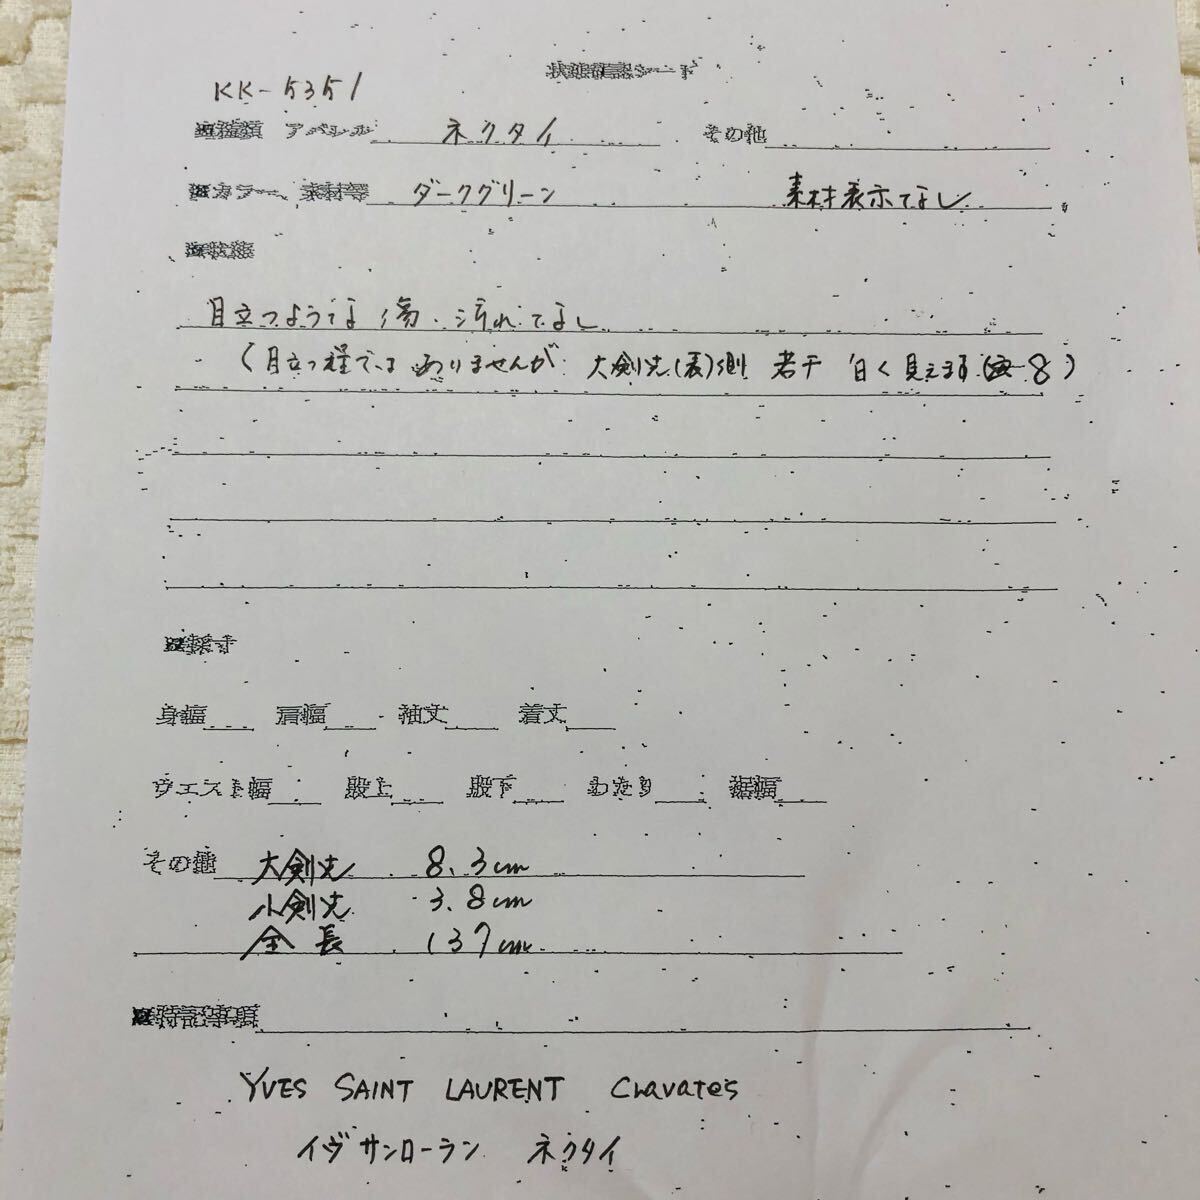 状態確認シート
KK-5351
■種類 アパレル ネクタイ その他
■カラー、素材等 ダークグリーン 素材表示なし
■状態
目立つような傷・汚れなし
(目立つ程ではありませんが 大剣先(表)側 若干 白く見えます
■採寸
身幅 肩幅 袖丈 着丈
ウエスト幅 股上 股下 わたり 裾幅
その他 大剣先 8.3cm
小剣先 3.8cm
全長 137cm
■特記事項
YVES SAINT LAURENT Cravates
イヴサンローラン ネクタイ